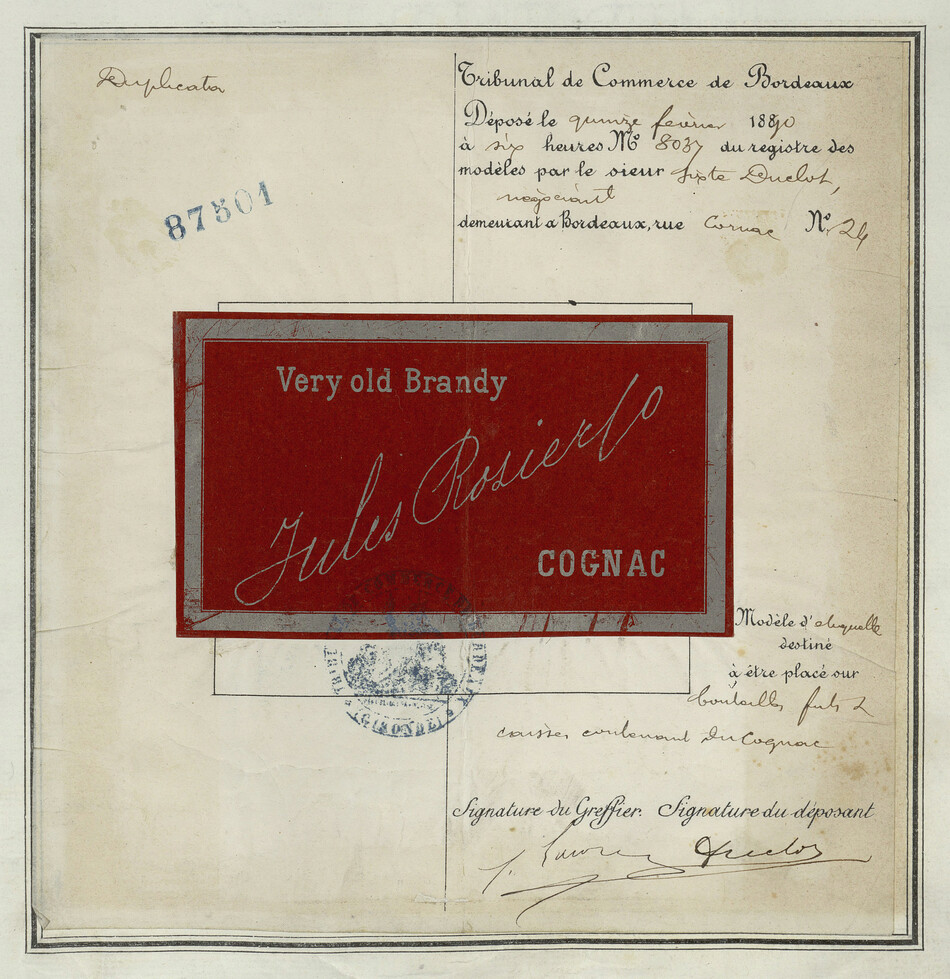 Duplicata
Tribunal de Commerce de Bordeaux
Déposé le quinze février 1890
à six heures Nº 8037 du registre des
modèles par le sieur Sixte Duclot,
négociant
demeurant a Bordeaux, rue Cornac Nº 24
87501
Very old Brandy
Jules Rosier & Co
COGNAC
BORDEAUX
(GIRONDE)
Modèle d'étiquette
destiné
à être placé sur
bouteilles futs &
caisses contenant du Cognac
Signature du Greffier. Signature du déposant
Duclot